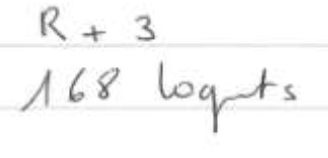 R + 3
168 logmts